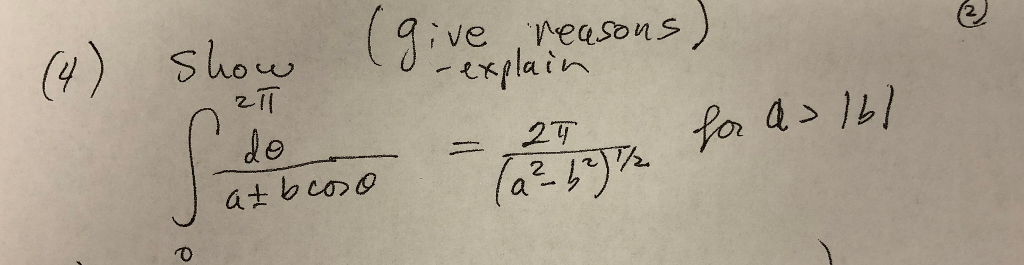 ②
(4) Show (give reasons)
-explain
∫₀^2π dθ / (a ± b cos θ) = 2π / (a² - b²)^1/2 for a > |b|